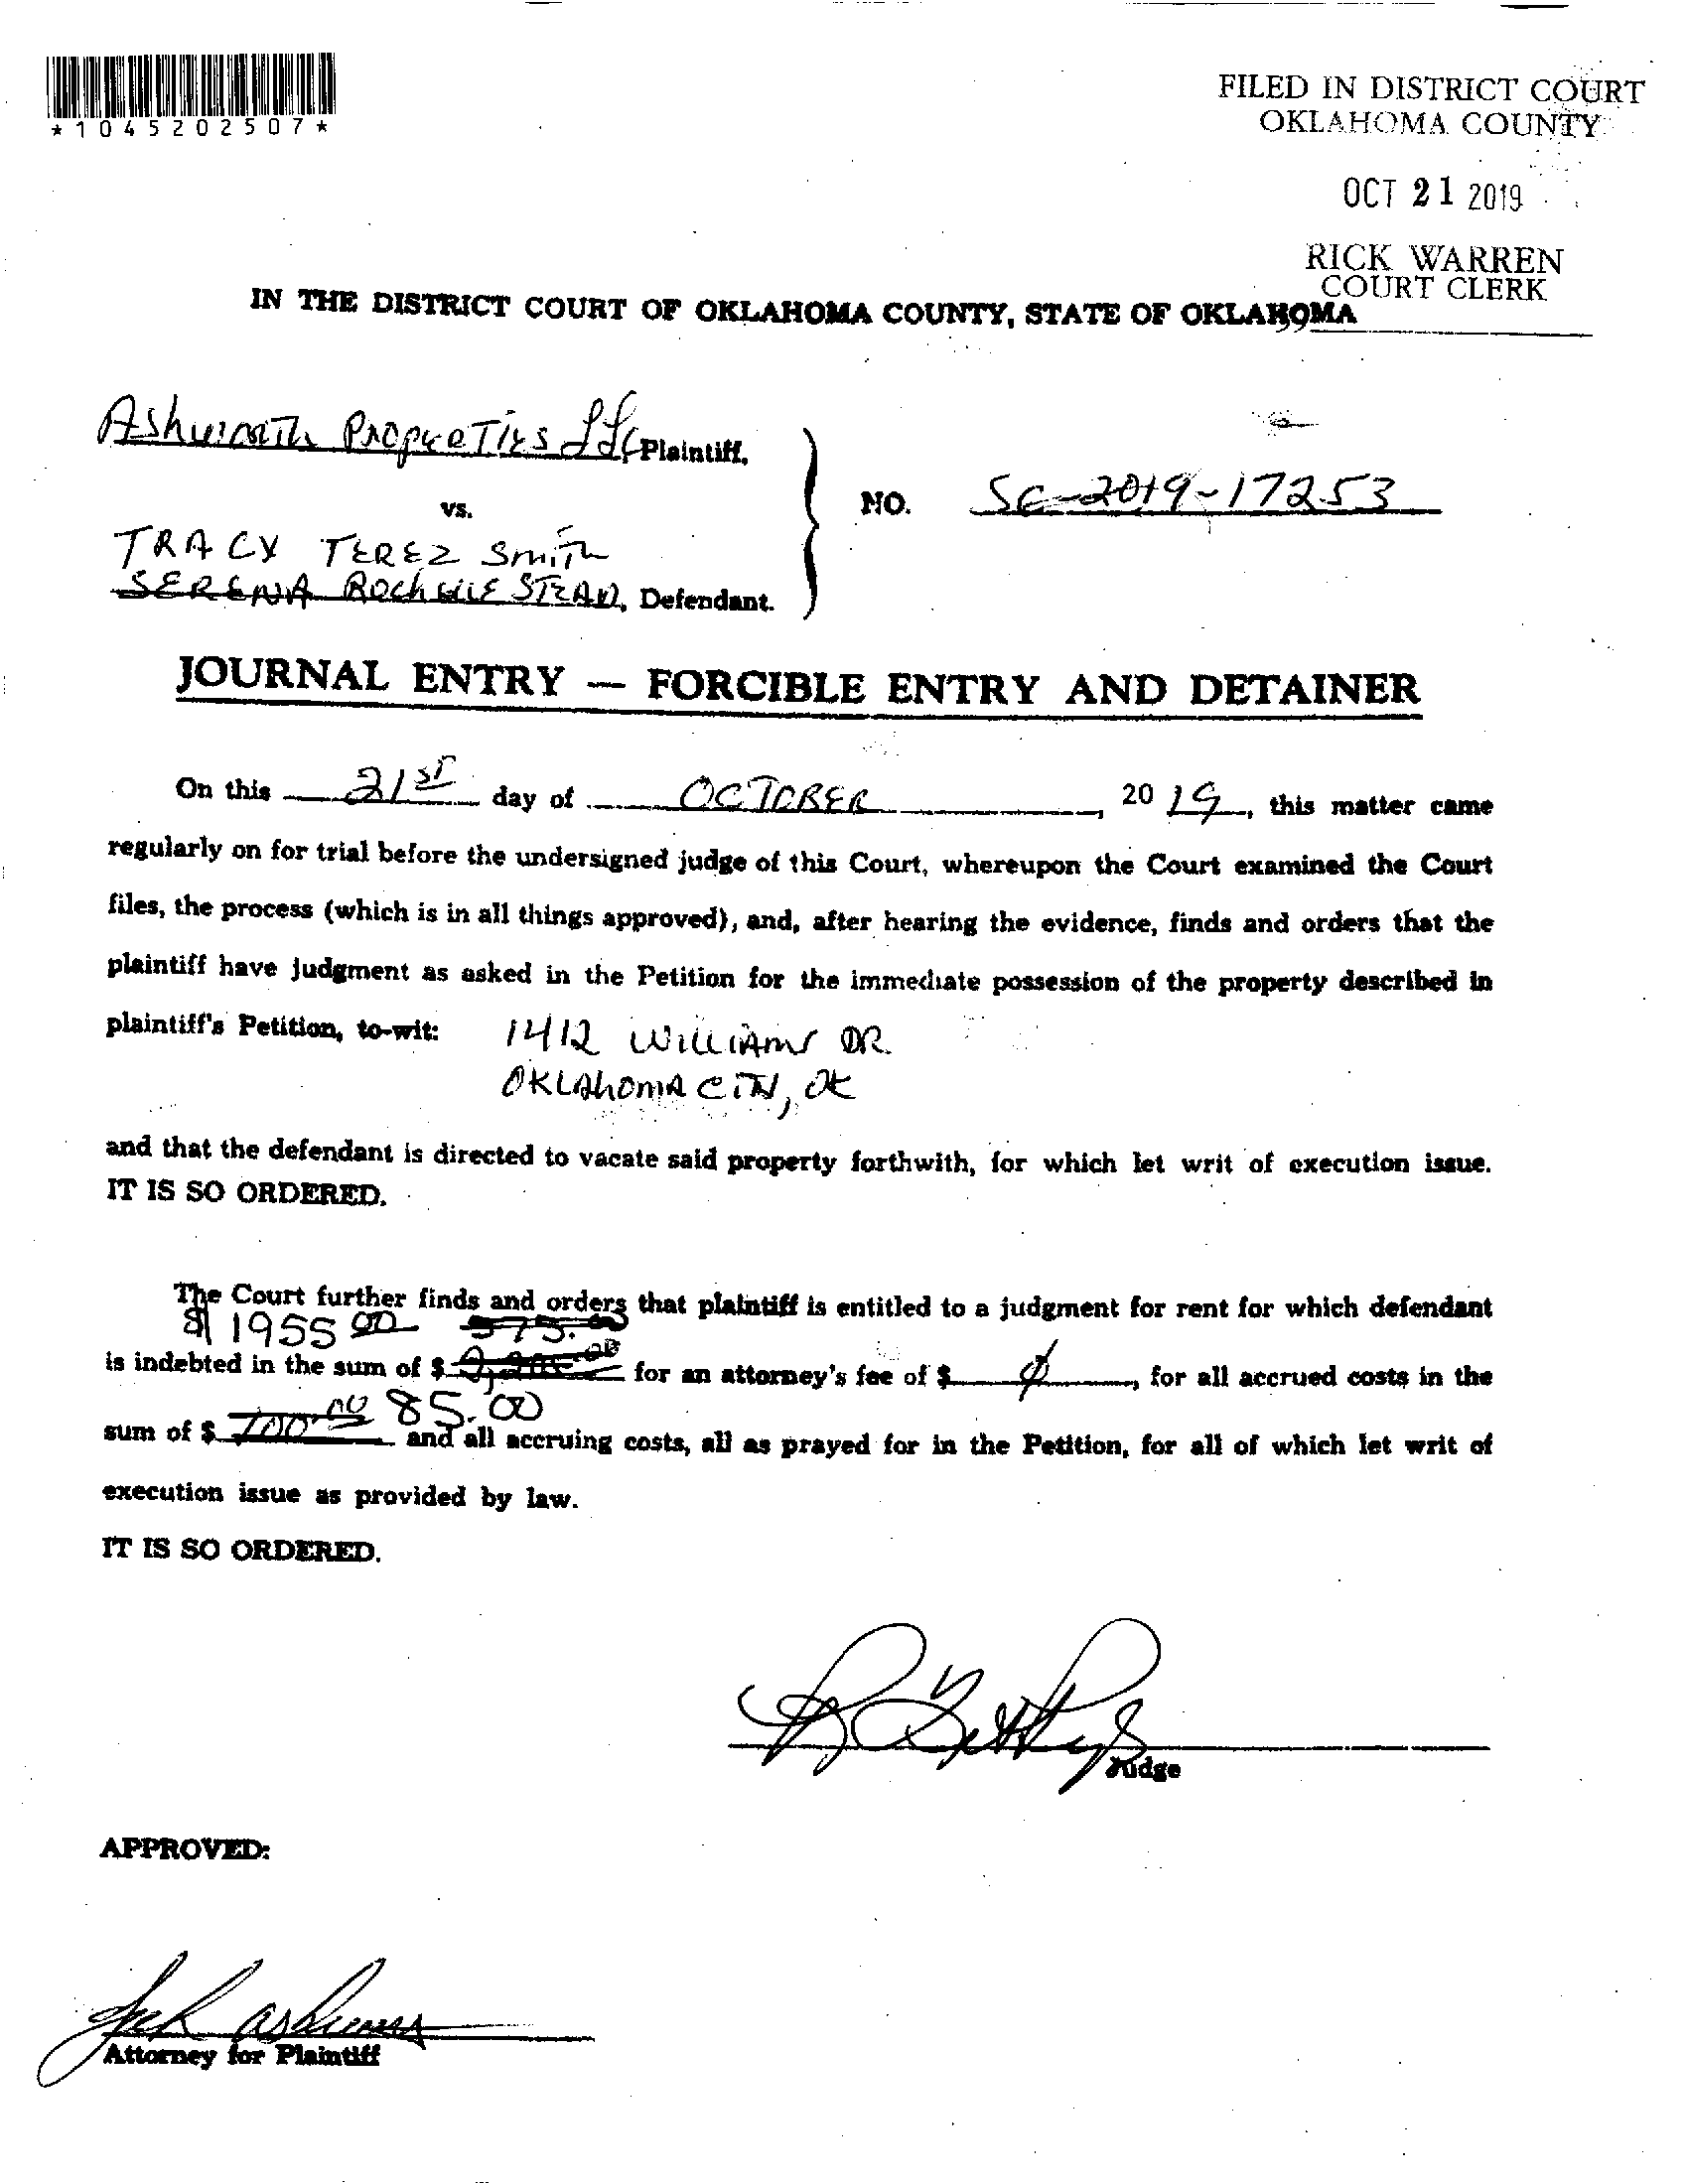 *1045202507*
FILED IN DISTRICT COURT
OKLAHOMA COUNTY
OCT 21 2019
RICK WARREN
COURT CLERK
IN THE DISTRICT COURT OF OKLAHOMA COUNTY, STATE OF OKLAHOMA
39
Ashworth Properties LLC Plaintiff,
vs.
NO. SC-2019-17253
TRACY TEREZ Smith
SERENA ROCHELLE STEAD, Defendant.
JOURNAL ENTRY — FORCIBLE ENTRY AND DETAINER
On this 21ST day of OCTOBER, 2019, this matter came
regularly on for trial before the undersigned judge of this Court, whereupon the Court examined the Court
files, the process (which is in all things approved), and, after hearing the evidence, finds and orders that the
plaintiff have judgment as asked in the Petition for the immediate possession of the property described in
plaintiff's Petition, to-wit: 1412 WILLIAMS DR
OKLAHOMA CITY, OK
and that the defendant is directed to vacate said property forthwith, for which let writ of execution issue.
IT IS SO ORDERED.
The Court further finds and orders that plaintiff is entitled to a judgment for rent for which defendant
$ 1955 00 575.00
is indebted in the sum of $ for an attorney's fee of $ Ø, for all accrued costs in the
sum of $ 100.00 85.00 and all accruing costs, all as prayed for in the Petition, for all of which let writ of
execution issue as provided by law.
IT IS SO ORDERED.
Judge
APPROVED:
Attorney for Plaintiff